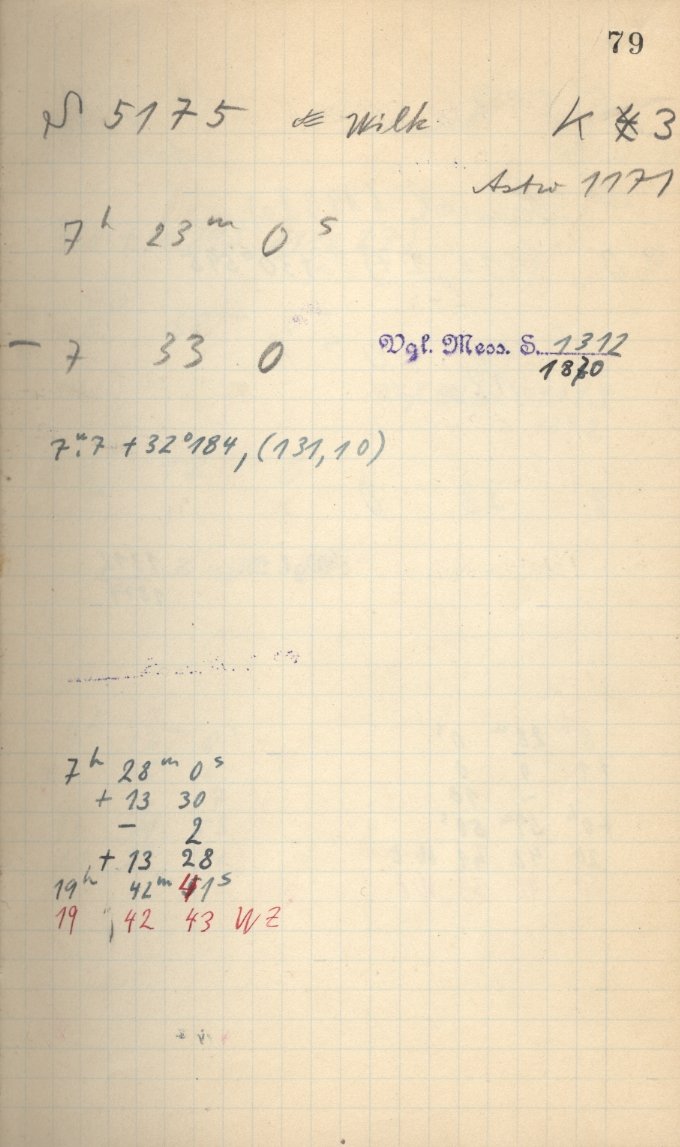 79
5175 Wilk K 3
Astro 1171
7h 23m 0s
- 7 33 0
Vgl. Mess. S. 1312
1870
7m.7 + 32°184, (131,10)
7h 28m 0s
+ 13 30
- 2
+ 13 28
19h 42m 41s
19 42 43 WZ